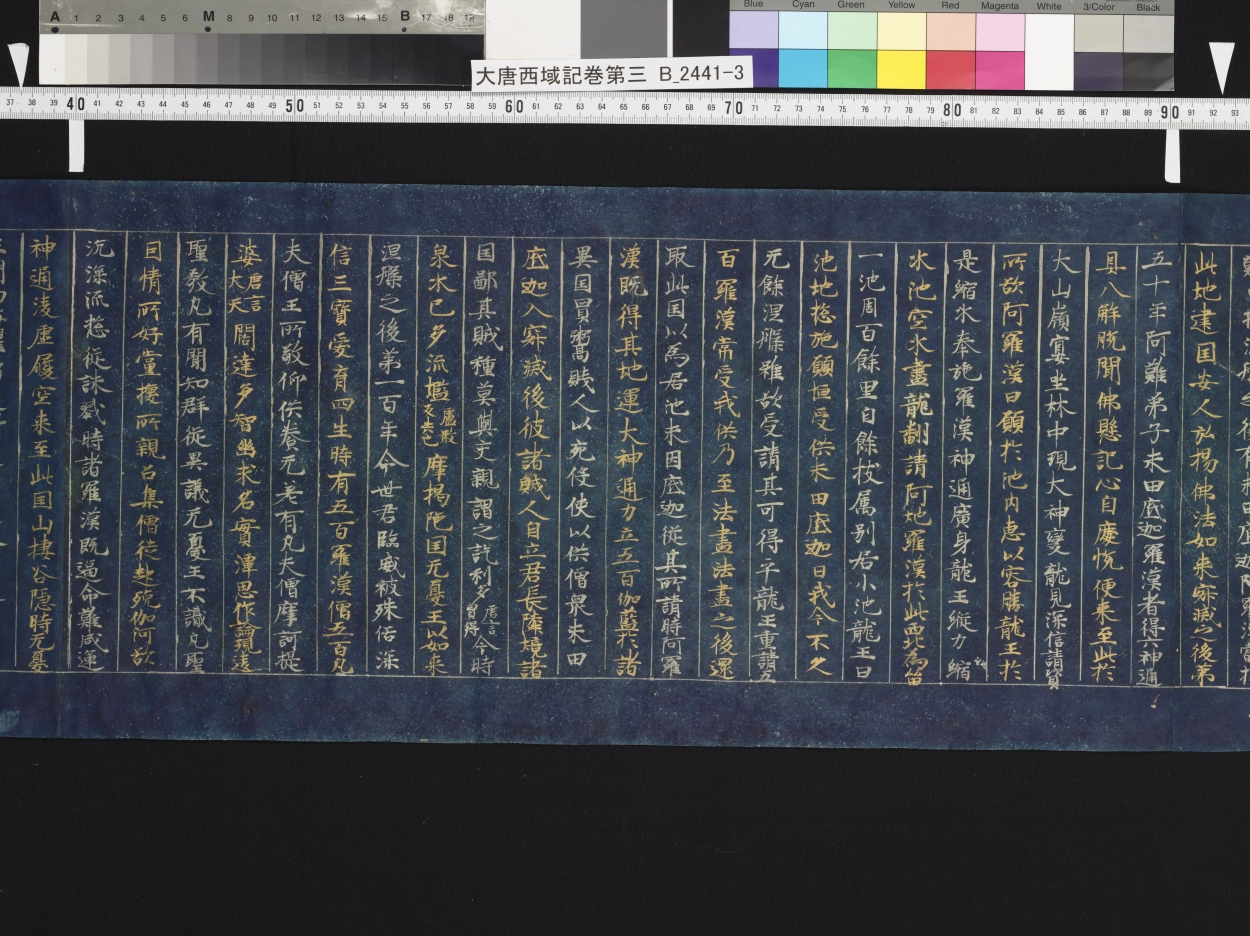 Blue Cyan Green Yellow Red Magenta White 3/Color Black
A 1 2 3 4 5 6 M 8 9 10 11 12 13 14 15 B 17 18 19
大唐西域記巻第三 B_2441-3
37 38 39 40 41 42 43 44 45 46 47 48 49 50 51 52 53 54 55 56 57 58 59 60 61 62 63 64 65 66 67 68 69 70 71 72 73 74 75 76 77 78 79 80 81 82 83 84 85 86 87 88 89 90 91 92 93
此地建国安人弘揚佛法如来寂滅之後弟
五十年阿難弟子末田底迦羅漢者得六神通
具八解脱聞佛懸記心自慶悦便来至此於
大山嶺宴坐林中現大神變龍見深信請資
所欲阿羅漢曰願於池内恵以容膝龍王於
是縮水奉施羅漢神通廣身龍王縦力縮
水池空水盡龍翻請阿地羅漢於此西北為留
一池周百餘里自餘枝属別居小池龍王曰
池地捴施願恒受供末田底迦曰我今不久
无餘涅槃雖欲受請其可得乎龍王重請五
百羅漢常受我供乃至法盡法盡之後還
取此国以為居池末田底迦従其所請時阿羅
漢既得其地運大神通力立五百伽藍於諸
異国買鬻賤人以充役使以供僧衆末田
底迦入寂滅後彼諸賊人自立君長隣境諸
国鄙其賊種莫與交親謂之訖利多唐言買得今時
泉水已多流濫
摩掲陁国无憂王以如来
涅槃之後第一百年命世君臨威被殊俗深
信三寶愛育四生時有五百羅漢僧五百凡
夫僧王所敬仰供養无差有凡夫僧摩訶提
婆唐言大天闊達多智幽求名實潭思作論違
聖教凡有聞知群従異議无憂王不識凡聖
因情所好黨援所親召集僧徒赴殑伽河欲
沉深流捴従誅戮時諸羅漢既逼命難咸運
神通凌虚履空来至此国山棲谷隠時无憂